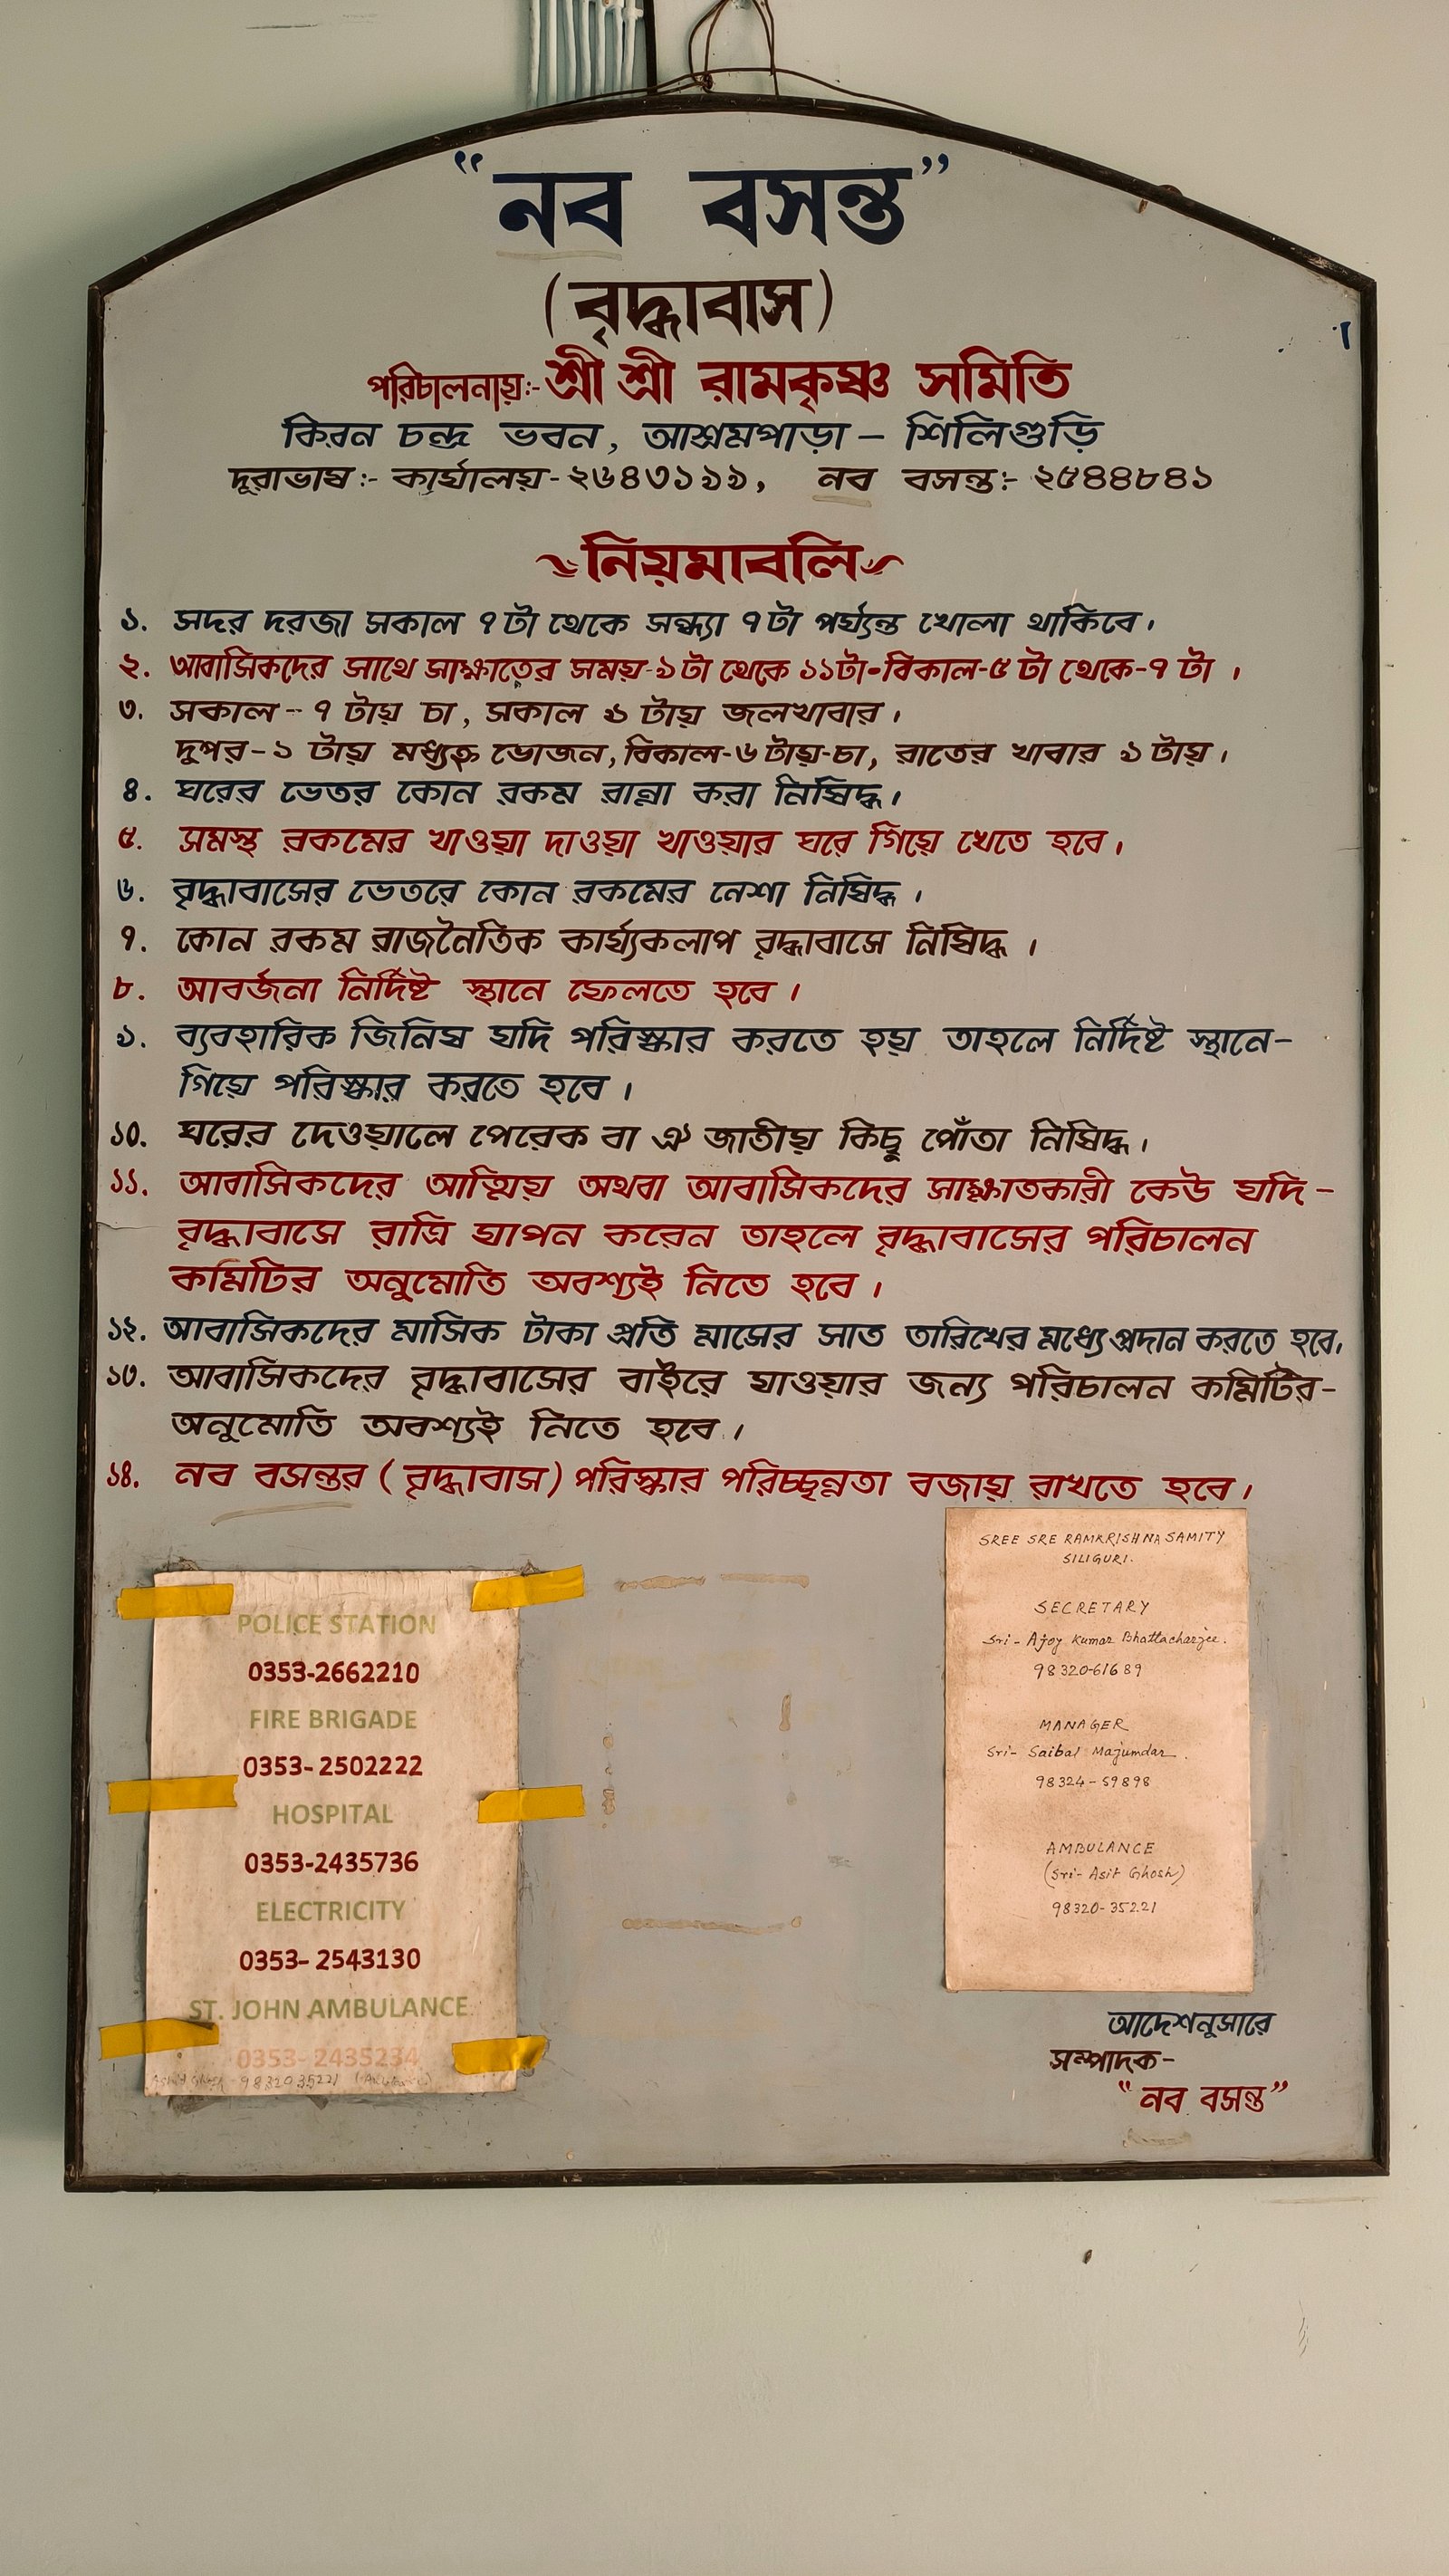 “নব বসন্ত”
(বৃদ্ধাবাস)
পরিচালনায়ঃ- শ্রী শ্রী রামকৃষ্ণ সমিতি
কিরন চন্দ্র ভবন, আশ্রমপাড়া – শিলিগুড়ি
দূরাভাষঃ- কার্য্যালয়-২৬৪৩১৯৯, নব বসন্তঃ- ২৫৪৪৮৪১
নিয়মাবলি
১. সদর দরজা সকাল ৭টা থেকে সন্ধ্যা ৭টা পর্য্যন্ত খোলা থাকিবে।
২. আবাসিকদের সাথে সাক্ষাতের সময়-৯টা থেকে ১১টা•বিকাল-৫ টা থেকে-৭ টা।
৩. সকাল-৭ টায় চা, সকাল ৯ টায় জলখাবার।
দুপর-১ টায় মধ্যহ্ন ভোজন, বিকাল-৬ টায়-চা, রাতের খাবার ৯ টায়।
৪. ঘরের ভেতর কোন রকম রান্না করা নিষিদ্ধ।
৫. সমস্থ রকমের খাওয়া দাওয়া খাওয়ার ঘরে গিয়ে খেতে হবে।
৬. বৃদ্ধাবাসের ভেতরে কোন রকমের নেশা নিষিদ্ধ।
৭. কোন রকম রাজনৈতিক কার্য্যকলাপ বৃদ্ধাবাসে নিষিদ্ধ।
৮. আবর্জনা নির্দিষ্ট স্থানে ফেলতে হবে।
৯. ব্যবহারিক জিনিষ যদি পরিস্কার করতে হয় তাহলে নির্দিষ্ট স্থানে-
গিয়ে পরিস্কার করতে হবে।
১০. ঘরের দেওয়ালে পেরেক বা ঐ জাতীয় কিছু পোঁতা নিষিদ্ধ।
১১. আবাসিকদের আত্মিয় অথবা আবাসিকদের সাক্ষাতকারী কেউ যদি-
বৃদ্ধাবাসে রাত্রি যাপন করেন তাহলে বৃদ্ধাবাসের পরিচালন
কমিটির অনুমোতি অবশ্যই নিতে হবে।
১২. আবাসিকদের মাসিক টাকা প্রতি মাসের সাত তারিখের মধ্যে প্রদান করতে হবে।
১৩. আবাসিকদের বৃদ্ধাবাসের বাইরে যাওয়ার জন্য পরিচালন কমিটির-
অনুমোতি অবশ্যই নিতে হবে।
১৪. নব বসন্তর (বৃদ্ধাবাস) পরিস্কার পরিচ্ছন্নতা বজায় রাখতে হবে।
POLICE STATION
0353-2662210
FIRE BRIGADE
0353-2502222
HOSPITAL
0353-2435736
ELECTRICITY
0353-2543130
ST. JOHN AMBULANCE
0353-2435234
9832035221
SREE SRE RAMKRISHNA SAMITY
SILIGURI.
SECRETARY
Sri- Ajoy Kumar Bhattacharjee.
98320-61689
MANAGER
Sri- Saibal Majumdar.
98324-59898
AMBULANCE
(Sri- Asit Ghosh)
98320-35221
আদেশনুসারে
সম্পাদক-
“নব বসন্ত”